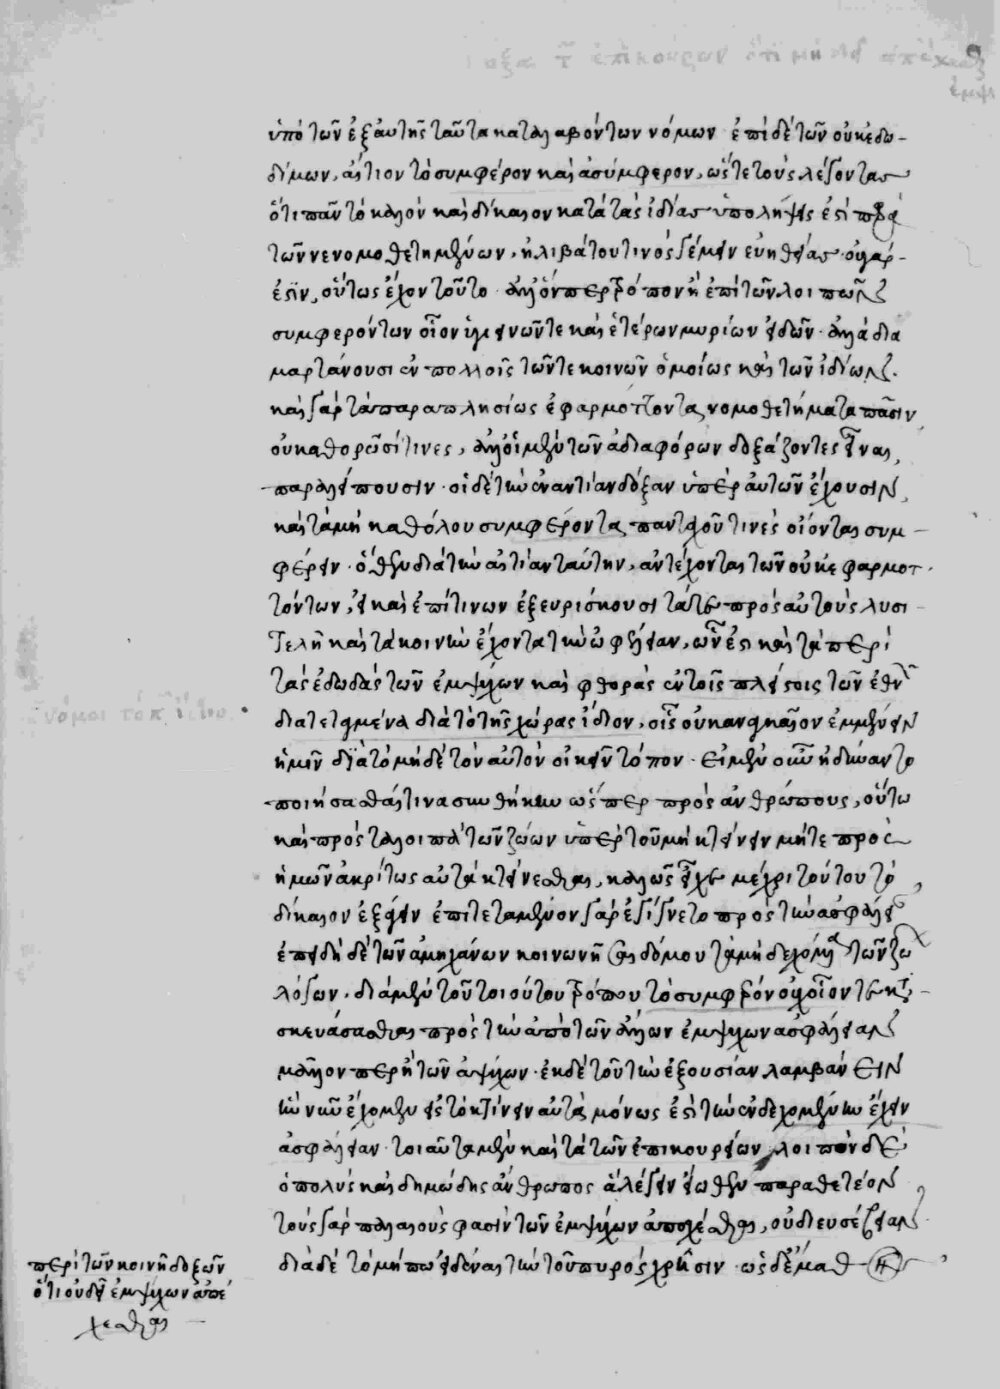 ὑπὸ τῶν ἐξ αὐτῆς ταῦτα καταλαβόντων νόμων ἐπὶ δὲ τῶν οὐκ ἐδω-
δίμων, αἴτιον τὸ συμφέρον καὶ ἀσύμφερον, ὥστε τοὺς λέγοντας
ὅτι πᾶν τὸ καλὸν καὶ δίκαιον κατὰ τὰς ἰδίας ὑπολήψεις ἐστὶ περὶ
τῶν νενομοθετημένων, ἠλιβάτου τινὸς γέμειν εὐηθείας· οὐ γάρ-
ἐστιν οὕτως ἔχον τοῦτο· ἀλλ' ὅνπερ τρόπον ἢ ἐπὶ τῶν λοιπῶν
συμφερόντων οἷον ὑγιεινῶν τε καὶ ἑτέρων μυρίων εἰδῶν· ἀλλὰ δια
μαρτάνουσι ἐν πολλοῖς τῶν τε κοινῶν ὁμοίως καὶ τῶν ἰδίων.
καὶ γὰρ τὰ παραπλησίως ἐφαρμόττοντα νομοθετήματα πᾶσιν
οὐ καθορῶσί τινες, ἀλλ' οἱ μὲν τῶν ἀδιαφόρων δοξάζοντες εἶναι,
παραλείπουσιν· οἱ δὲ τὴν ἐναντίαν δόξαν ὑπὲρ αὐτῶν ἔχουσιν
καὶ τὰ μὴ καθόλου συμφέροντα πανταχοῦ τινὲς οἴονται συμ-
φέρειν· ὅθεν διὰ τὴν αἰτίαν ταύτην, ἀντέχονται τῶν οὐκ ἐφαρμοτ-
τόντων, εἰ καὶ ἐπί τινων ἐξευρίσκουσι τά τε πρὸς αὑτοὺς λυσι-
τελῆ καὶ τὰ κοινὴν ἔχοντα τὴν ὠφέλειαν, ὧν ἐστι καὶ τὰ περὶ
τὰς ἐδωδὰς τῶν ἐμψύχων καὶ φθορὰς ἐν τοῖς πλείστοις τῶν ἐθνῶν
διατεταγμένα διὰ τὸ τῆς χώρας ἴδιον, οἷς οὐκ ἀναγκαῖον ἐμμένειν
ἡμῖν διὰ τὸ μηδὲ τὸν αὐτὸν οἰκεῖν τόπον· εἰ μὲν οὖν ἠδύναντο
ποιήσασθαί τινα συνθήκην ὥσπερ πρὸς ἀνθρώπους, οὕτω
καὶ πρὸς τὰ λοιπὰ τῶν ζώων ὑπὲρ τοῦ μὴ κτείνειν μήτε πρὸς
ἡμῶν ἀκρίτως αὐτὰ κτείνεσθαι, καλῶς εἶχε μέχρι τούτου τὸ
δίκαιον ἐξάγειν ἐπιτεταμένον γὰρ ἐγίγνετο πρὸς τὴν ἀσφάλειαν
ἐπειδὴ δὲ τῶν ἀμηχάνων κοινωνῆσαι νόμου τὰ μὴ δεχόμενα τῶν ζώων
λόγον, διὰ μὲν τοῦ τοιούτου τρόπου τὸ συμφέρον οὐχ οἷόν τε κατα-
σκευάσασθαι πρὸς τὴν ἀπὸ τῶν ἄλλων ἐμψύχων ἀσφάλειαν
μᾶλλον περ ἢ τῶν ἀψύχων· ἐκ δὲ τοῦ τὴν ἐξουσίαν λαμβάνειν
ἣν νῦν ἔχομεν εἰς τὸ κτείνειν αὐτὰ μόνως ἐστὶ τὴν ἐνδεχομένην ἔχειν
ἀσφάλειαν· τοιαῦτα μὲν καὶ τὰ τῶν ἐπικουρείων λοιπὸν δὲ
ὁ πολὺς καὶ δημώδης ἄνθρωπος ἃ λέγειν εἴωθεν παραθετέον
τοὺς γὰρ παλαιούς φασιν τῶν ἐμψύχων ἀποσχέσθαι, οὐ δι' εὐσέβειαν
διὰ δὲ τὸ μήπω εἰδέναι τὴν τοῦ πυρὸς χρῆσιν· ὡς δὲ μαθ
περὶ τῶν κοινῇ δοξῶν
ὅτι οὐ δεῖ ἐμψύχων ἀπέ
χεσθαι